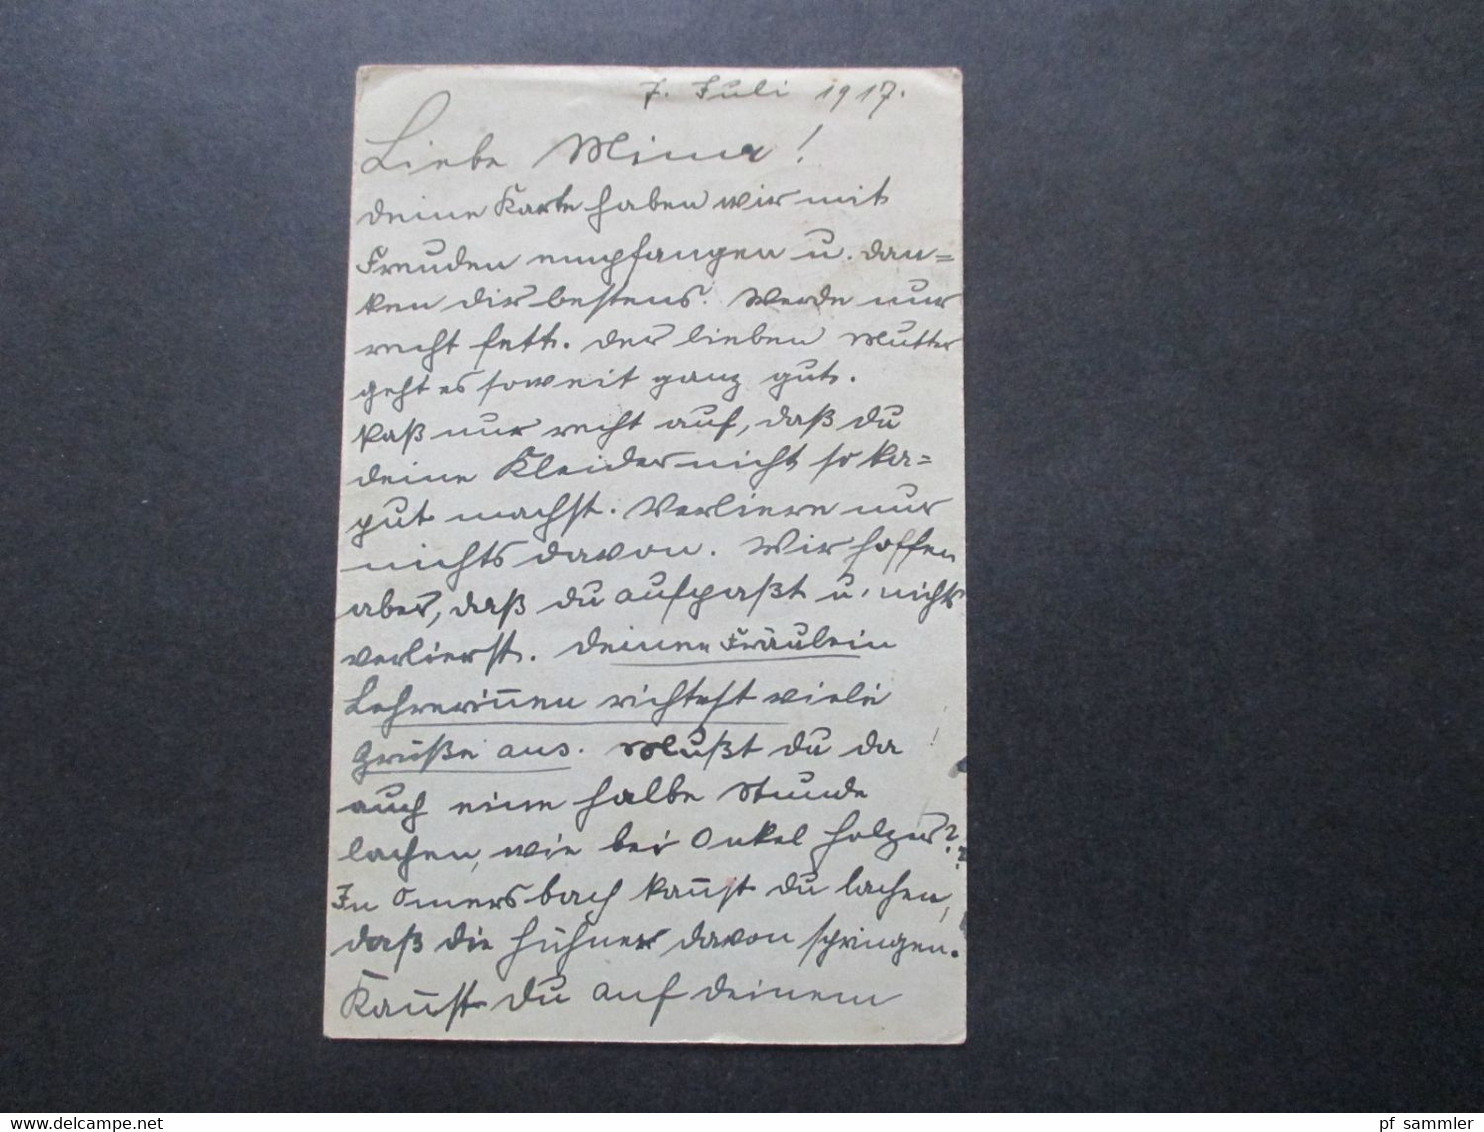 7. Juli 1917.
Liebe Mina!
Deine Karte haben wir mit
Freuden empfangen u. dan=
ken dir bestens. Werde nur
recht fett. Der lieben Mutter
geht es soweit ganz gut.
Paß nur recht auf, daß du
deine Kleider nicht so ka=
put machst. Verliere nur
nichts davon. Wir hoffen
aber, daß du aufpaßt u. nichts
verlierst. Deinen Fräulein
Lehrerin̄en richtest viele
Grüße aus. Mußt du da
auch eine halbe Stunde
lachen, wie bei Onkel Holzer?
In Ömersbach kan̄st du lachen,
daß die Hühner davon springen.
Kan̄st du auf deinem
delcampe.net
pf_sammler